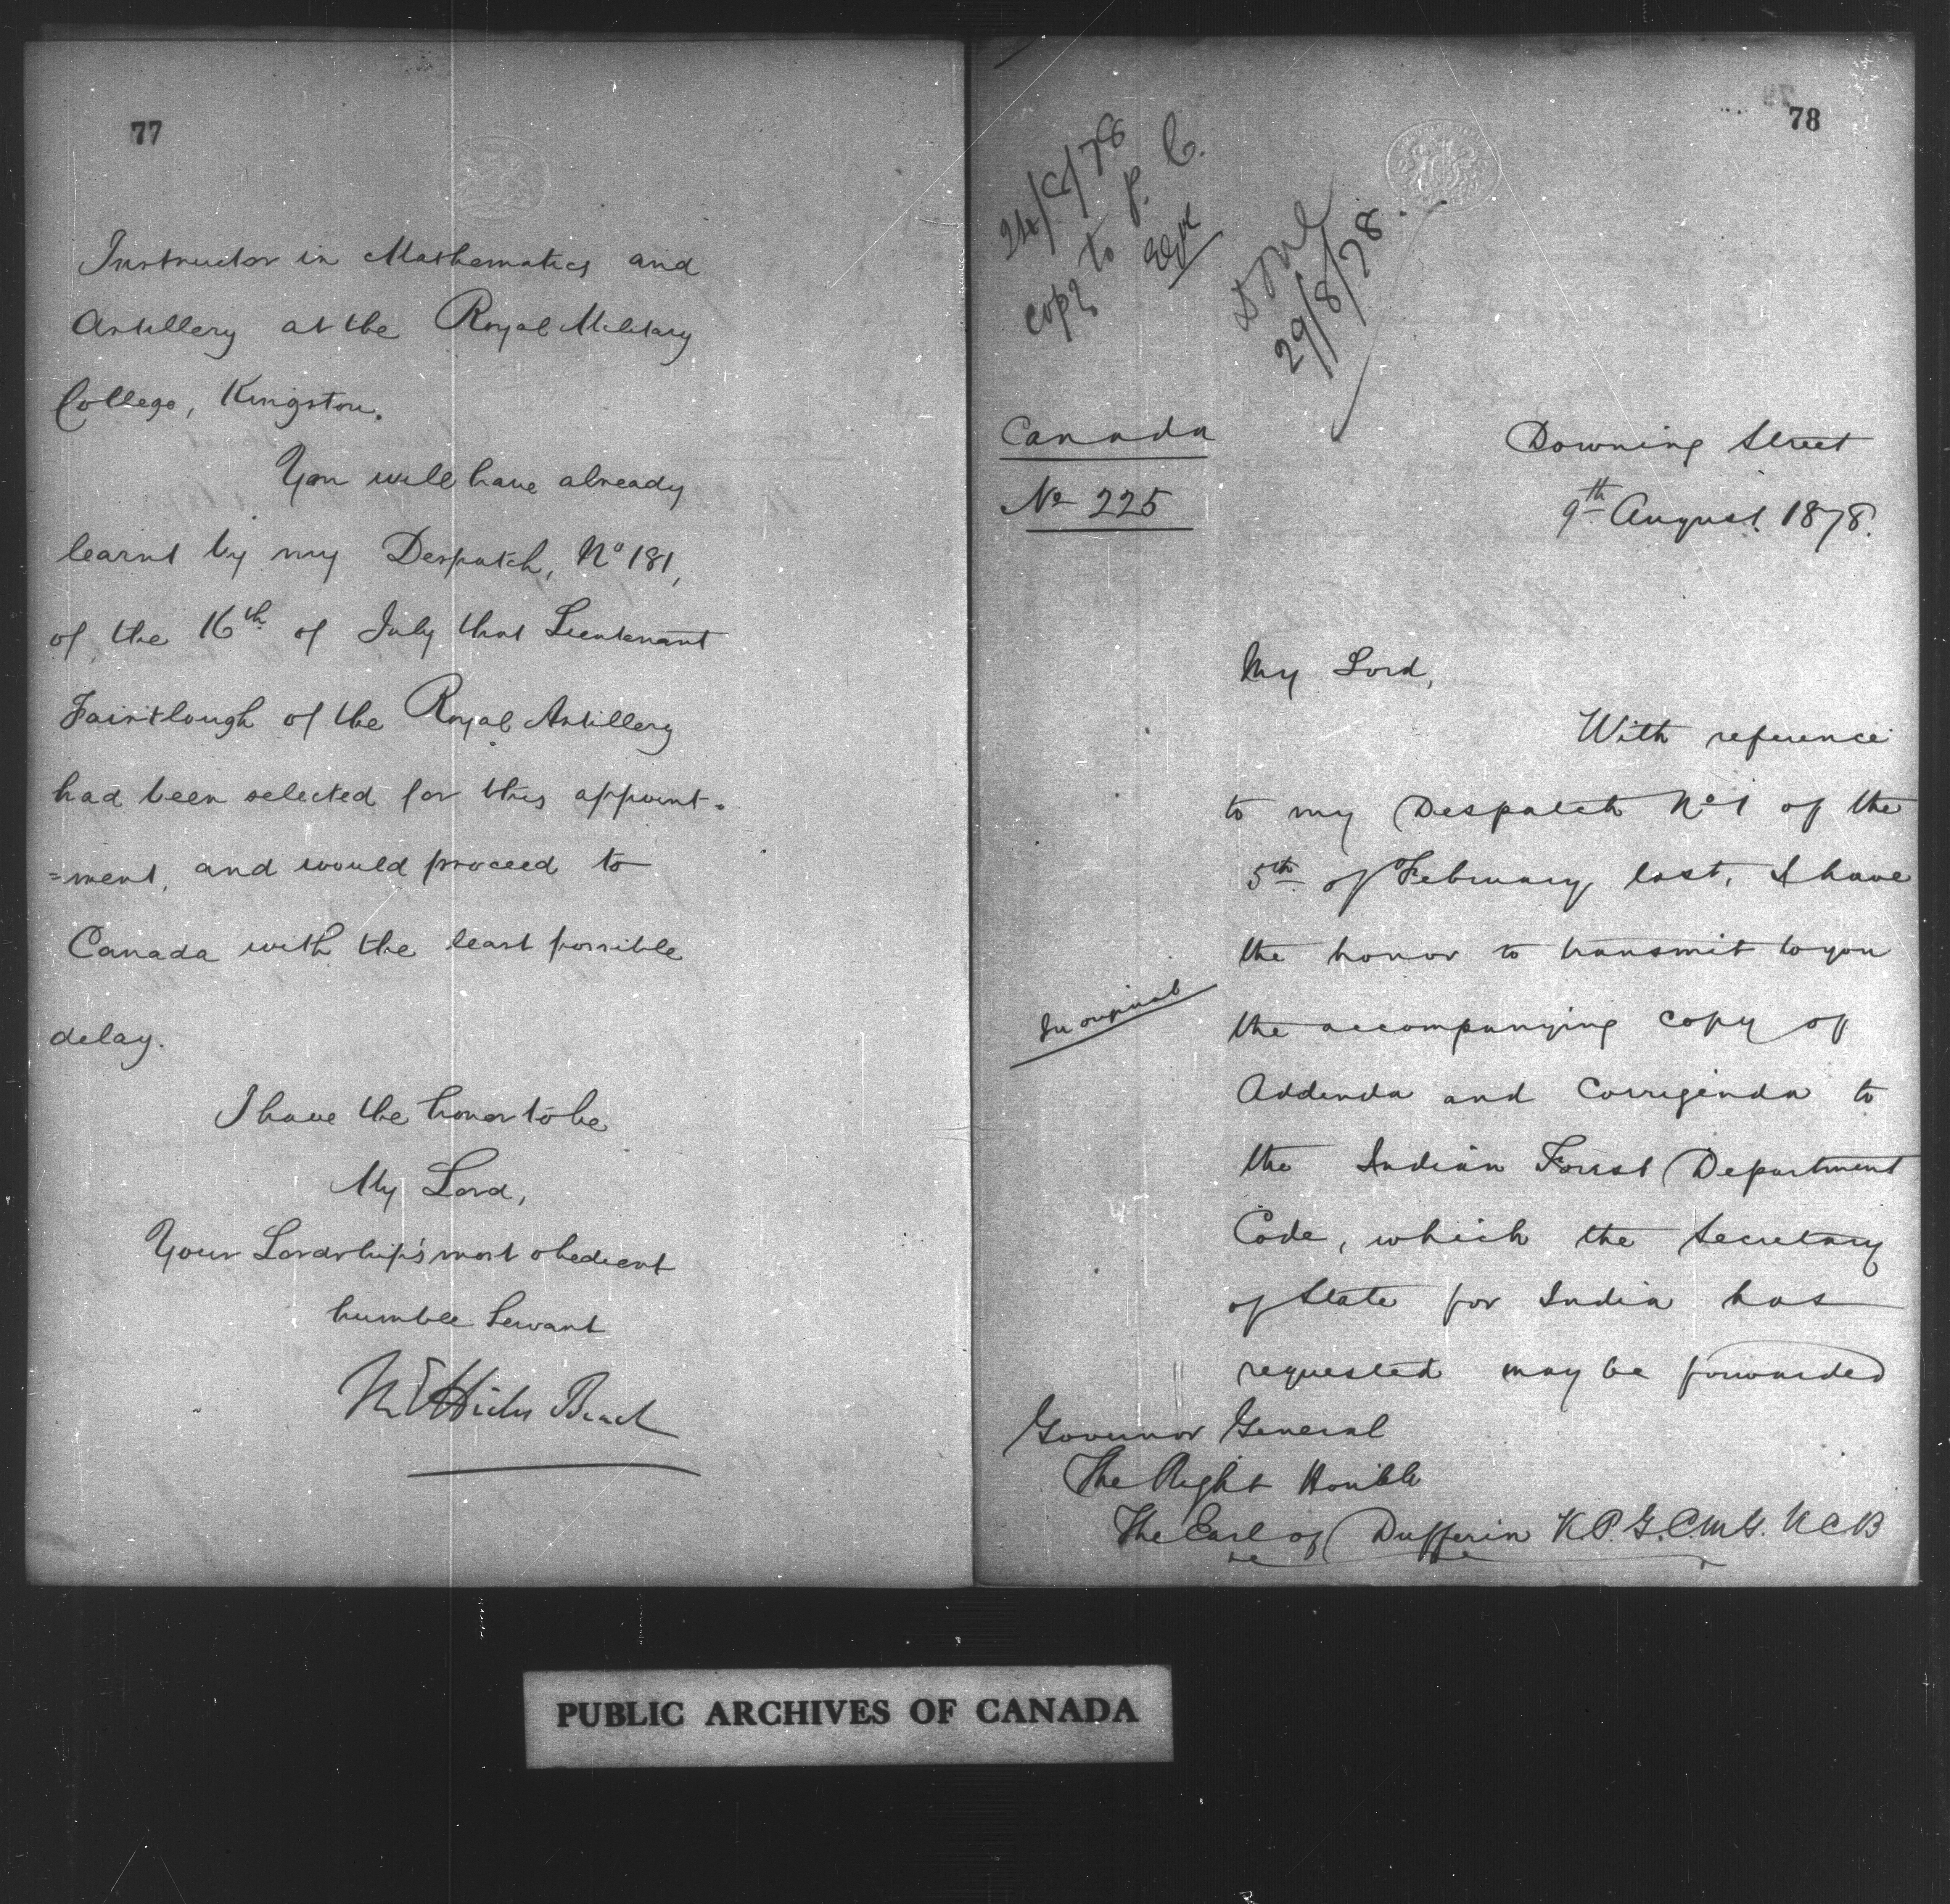 77
Instructor in Mathematics and
Artillery at the Royal Military
College, Kingston.
You will have already
learnt by my Despatch, No 181,
of the 16th of July that Lieutenant
Fairtlough of the Royal Artillery
had been selected for this appoint-
=ment, and would proceed to
Canada with the least possible
delay.
I have the honor to be
My Lord,
Your Lordship's most obedient
humble Servant
M E Hicks Beach
78
24/8/78
copy to P. C.
Done
29/8/78
Canada
No 225
Downing Street
9th August 1878.
My Lord,
With reference
to my Despatch No 1 of the
5th of February last, I have
the honor to transmit to you
In original
the accompanying copy of
Addenda and Corrigenda to
the Indian Forest Department
Code, which the Secretary
of State for India has
requested may be forwarded
Governor General
The Right Honble
The Earl of Dufferin K.P. G.C.M.G. K C B
PUBLIC ARCHIVES OF CANADA